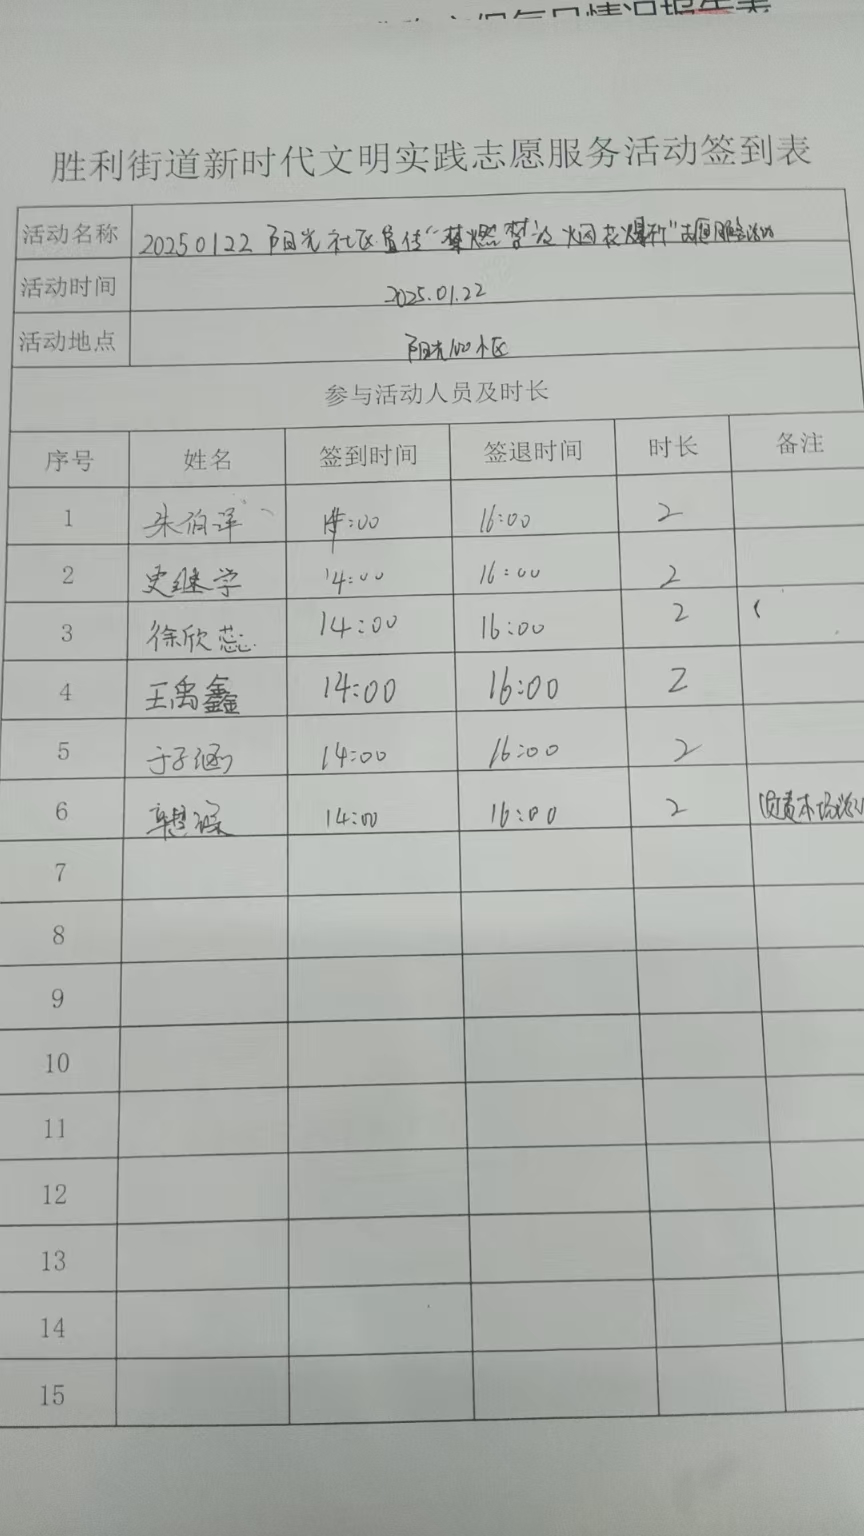 胜利街道新时代文明实践志愿服务活动签到表
活动名称 20250122 阳光社区宣传“禁燃禁放烟花爆竹”志愿服务活动
活动时间 2025.01.22
活动地点 阳光100小区
参与活动人员及时长
序号 姓名 签到时间 签退时间 时长 备注
1 朱伯洋 14:00 16:00 2
2 史继学 14:00 16:00 2
3 徐欣蕊 14:00 16:00 2
4 王禹鑫 14:00 16:00 2
5 于子涵 14:00 16:00 2
6 14:00 16:00 2 负责本场
7
8
9
10
11
12
13
14
15